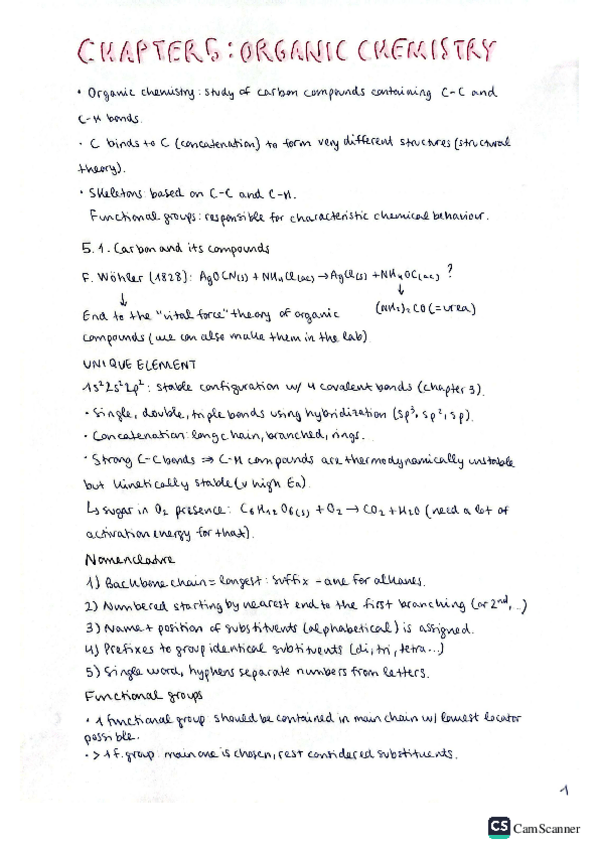 CHAPTER 5: ORGANIC CHEMISTRY
• Organic chemistry: study of carbon compounds containing C-C and
C-H bonds.
• C binds to C (concatenation) to form very different structures (structural
theory).
• Skeletons based on C-C and C-H.
Functional groups: responsible for characteristic chemical behaviour.
5.1. Carbon and its compounds
F. Wöhler (1828): AgOCN(s) + NH4Cl(ac) → AgCl(s) + NH4OC(ac) ?
↓ ↓
End to the "vital force" theory of organic (NH2)2CO (=urea)
compounds (we can also make them in the lab)
UNIQUE ELEMENT
1s²2s²2p²: stable configuration w/ 4 covalent bonds (chapter 3).
• Single, double, triple bonds using hybridization (sp³, sp², sp).
• Concatenation: long chain, branched, rings.
• Strong C-C bonds ⇒ C-H compounds are thermodynamically unstable
but kinetically stable (v high Ea).
↳ sugar in O2 presence: C6H12O6(s) + O2 → CO2 + H2O (need a lot of
activation energy for that).
Nomenclature
1) Backbone chain = longest: suffix -ane for alkanes.
2) Numbered starting by nearest end to the first branching (or 2nd, ..)
3) Name + position of substituents (alphabetical) is assigned.
4) Prefixes to group identical subtituents (di, tri, tetra...)
5) Single word, hyphens separate numbers from letters.
Functional groups
• 1 functional group should be contained in main chain w/ lowest locator
possible.
• > 1 f. group: main one is chosen, rest considered substituents.
1
CS CamScanner